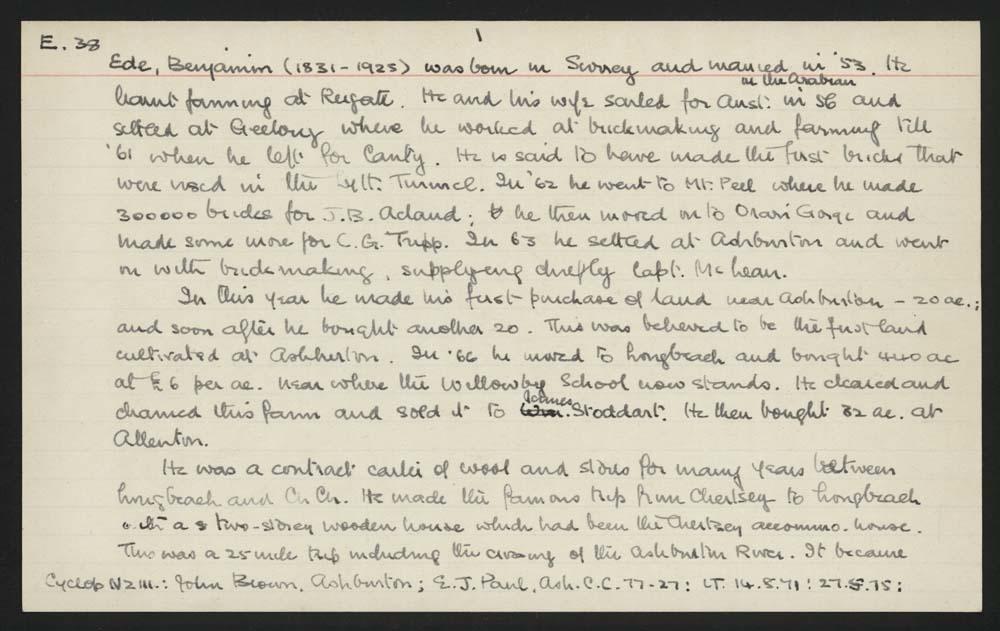 E. 38
1
Ede, Benjamin (1831-1925) was born in Surrey and married in '53. He
in the Arabian
learnt farming at Reigate. He and his wife sailed for Aust: in 56 and
settled at Geelong where he worked at brickmaking and farming till
'61 when he left for Canty. He is said to have made the first bricks that
were used in the Lytt. Tunnel. In '62 he went to Mt. Peel where he made
300000 bricks for J.B. Acland; he then moved on to Orari Gorge and
made some more for C.G. Tripp. In 63 he settled at Ashburton and went
on with brickmaking, supplyeing chiefly Capt. McLean.
In this year he made his first purchase of land near Ashburton - 20 ac.;
and soon after he bought another 20. This was believed to be the first land
cultivated at Ashburton. In '66 he moved to Longbeach and bought 440 ac
at £6 per ac. near where the Willowby School now stands. He cleared and
James
drained this farm and sold it to Wm. Stoddart. He then bought 32 ac. at
Allenton.
He was a contract carter of wool and stores for many years between
Longbeach and Ch Ch. He made the famous trip from Chertsey to Longbeach
with a two-storey wooden house which had been the Chertsey accommo. house.
This was a 25 mile trip including the crossing of the Ashburton River. It became
Cyclop NZ III.: John Brown, Ashburton; E.J. Paul, Ash.C.C. 77-27: LT. 14.8.71: 27.5.75: